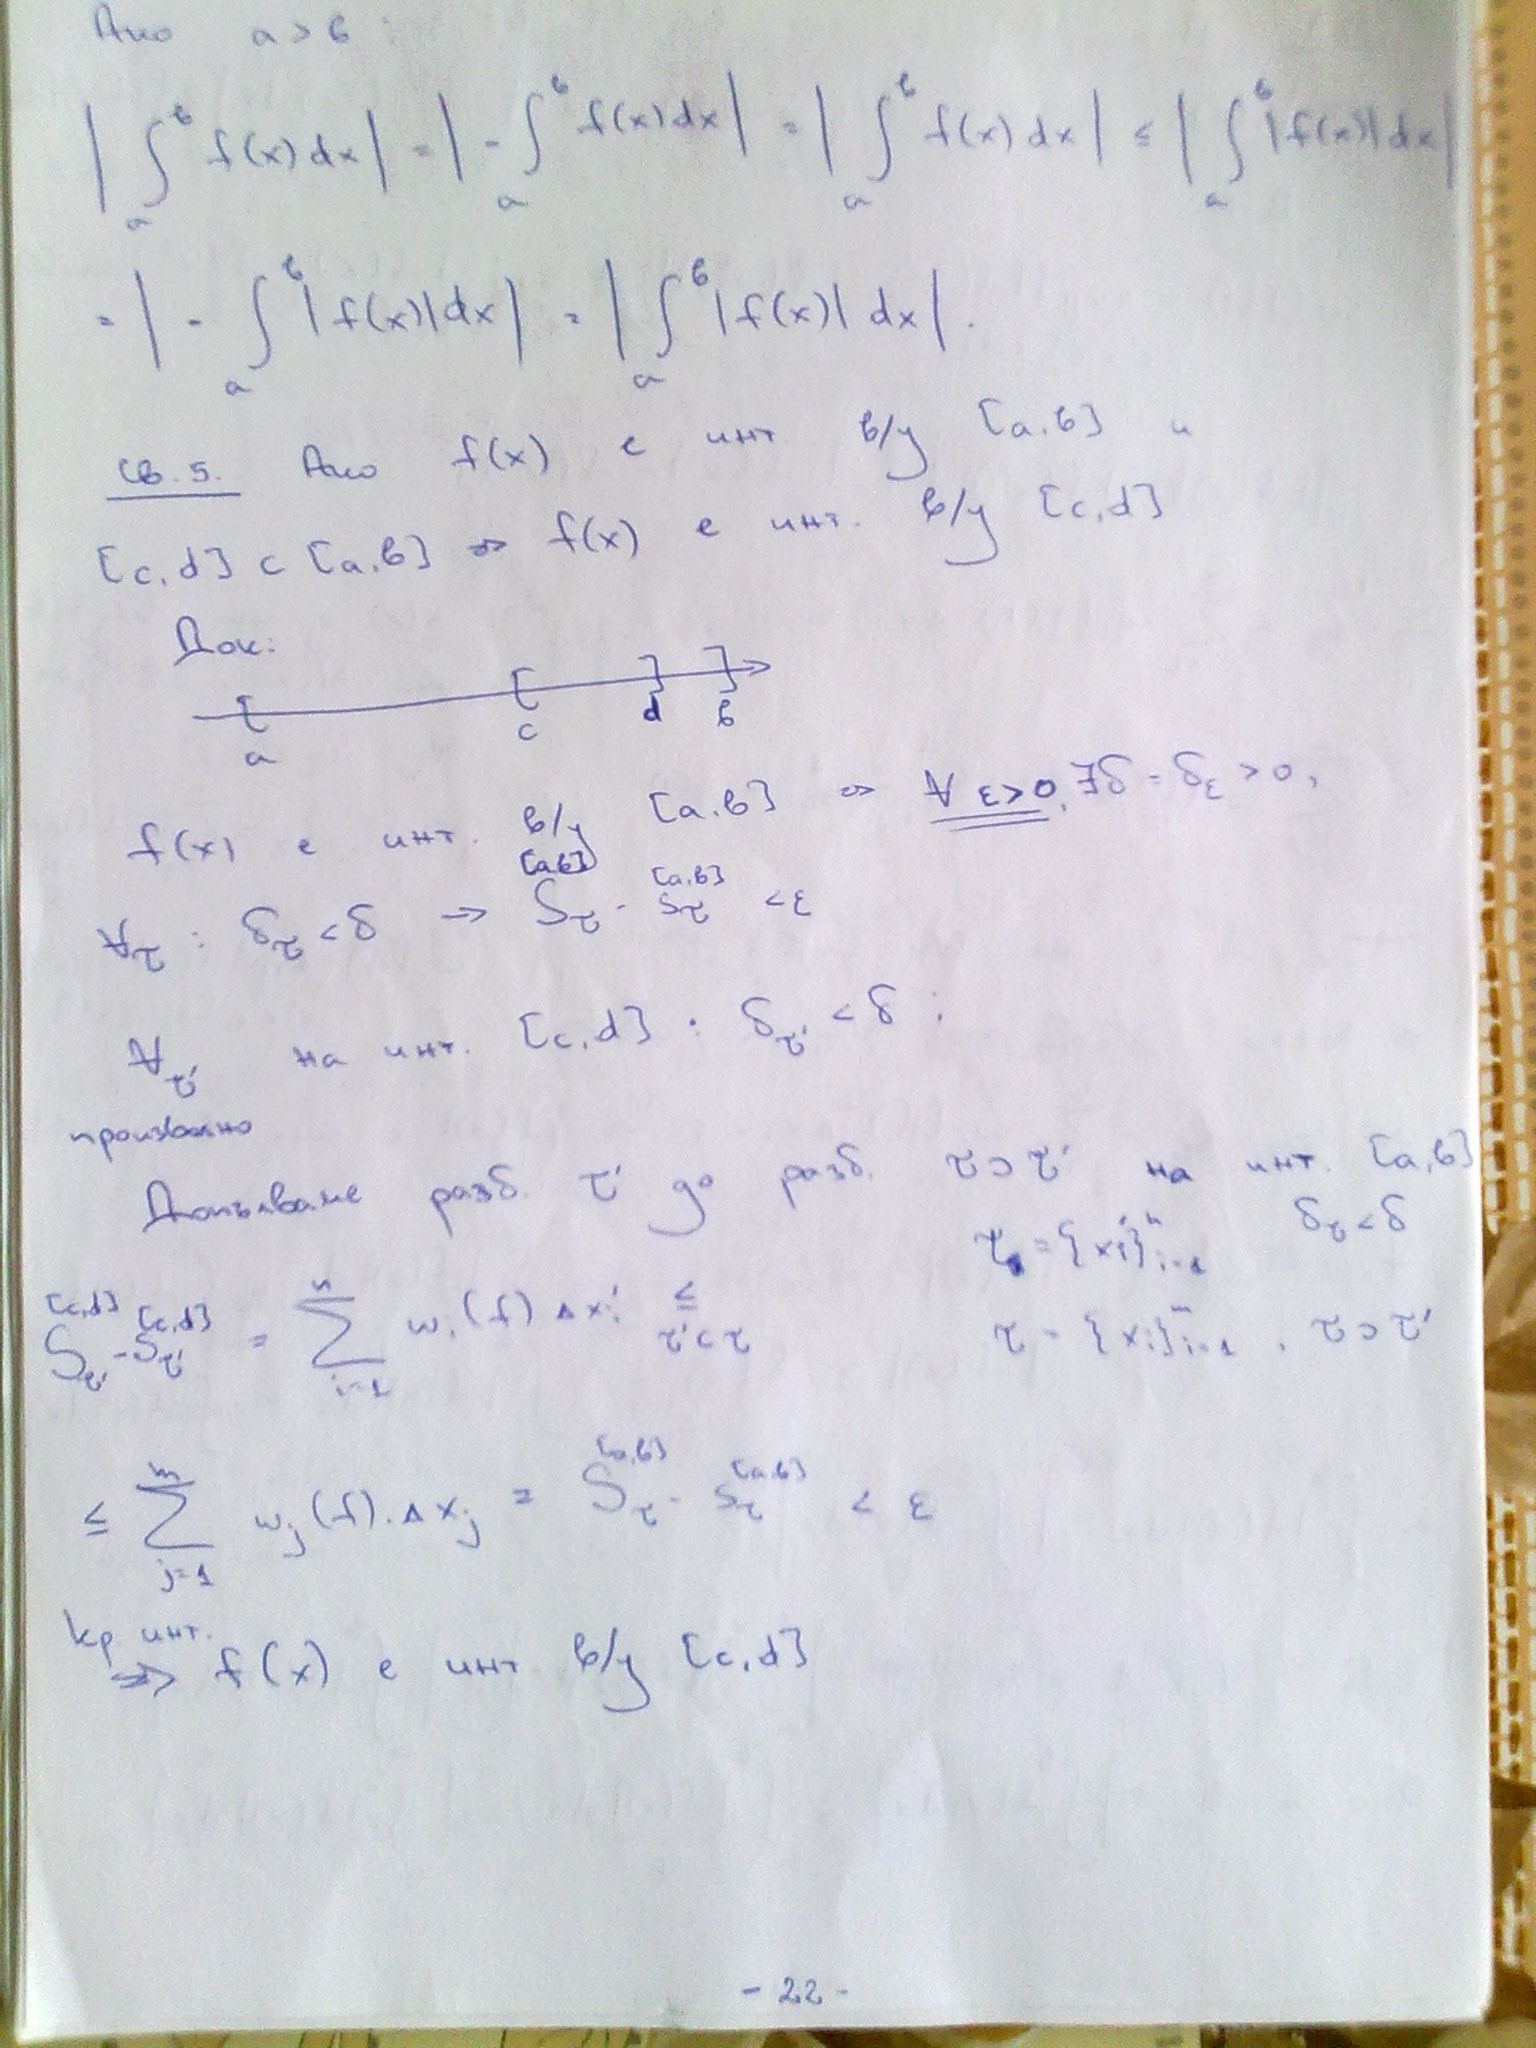 Ако a > b :
| ∫_a^b f(x) dx | = | - ∫_a^b f(x) dx | = | ∫_a^b f(x) dx | ≤ | ∫_a^b |f(x)| dx |
= | - ∫_a^b |f(x)| dx | = | ∫_a^b |f(x)| dx | .
Св. 5. Ако f(x) е инт. в/у [a, b] и
[c, d] ⊂ [a, b] ⇒ f(x) е инт. в/у [c, d]
Док:
a c d b
f(x) е инт. в/у [a, b] ⇒ ∀ ε>0, ∃δ = δ_ε > 0,
∀τ : δ_τ < δ → S_τ^[a,b] - s_τ^[a,b] < ε
∀τ' на инт. [c, d] : δ_τ' < δ ;
произволно
Допълваме разб. τ' до разб. τ ⊃ τ' на инт. [a, b]
δ_τ < δ
τ' = {x_i'}_{i=1}^n
S_τ'^[c,d] - s_τ'^[c,d] = ∑_{i=1}^n w_i (f) Δx_i' ≤_{τ' ⊂ τ}
τ = {x_i}_{i=1}^m , τ ⊃ τ'
≤ ∑_{j=1}^m w_j (f) . Δx_j = S_τ^[a,b] - s_τ^[a,b] < ε
кр. инт.
⇒ f(x) е инт. в/у [c, d]
- 22 -